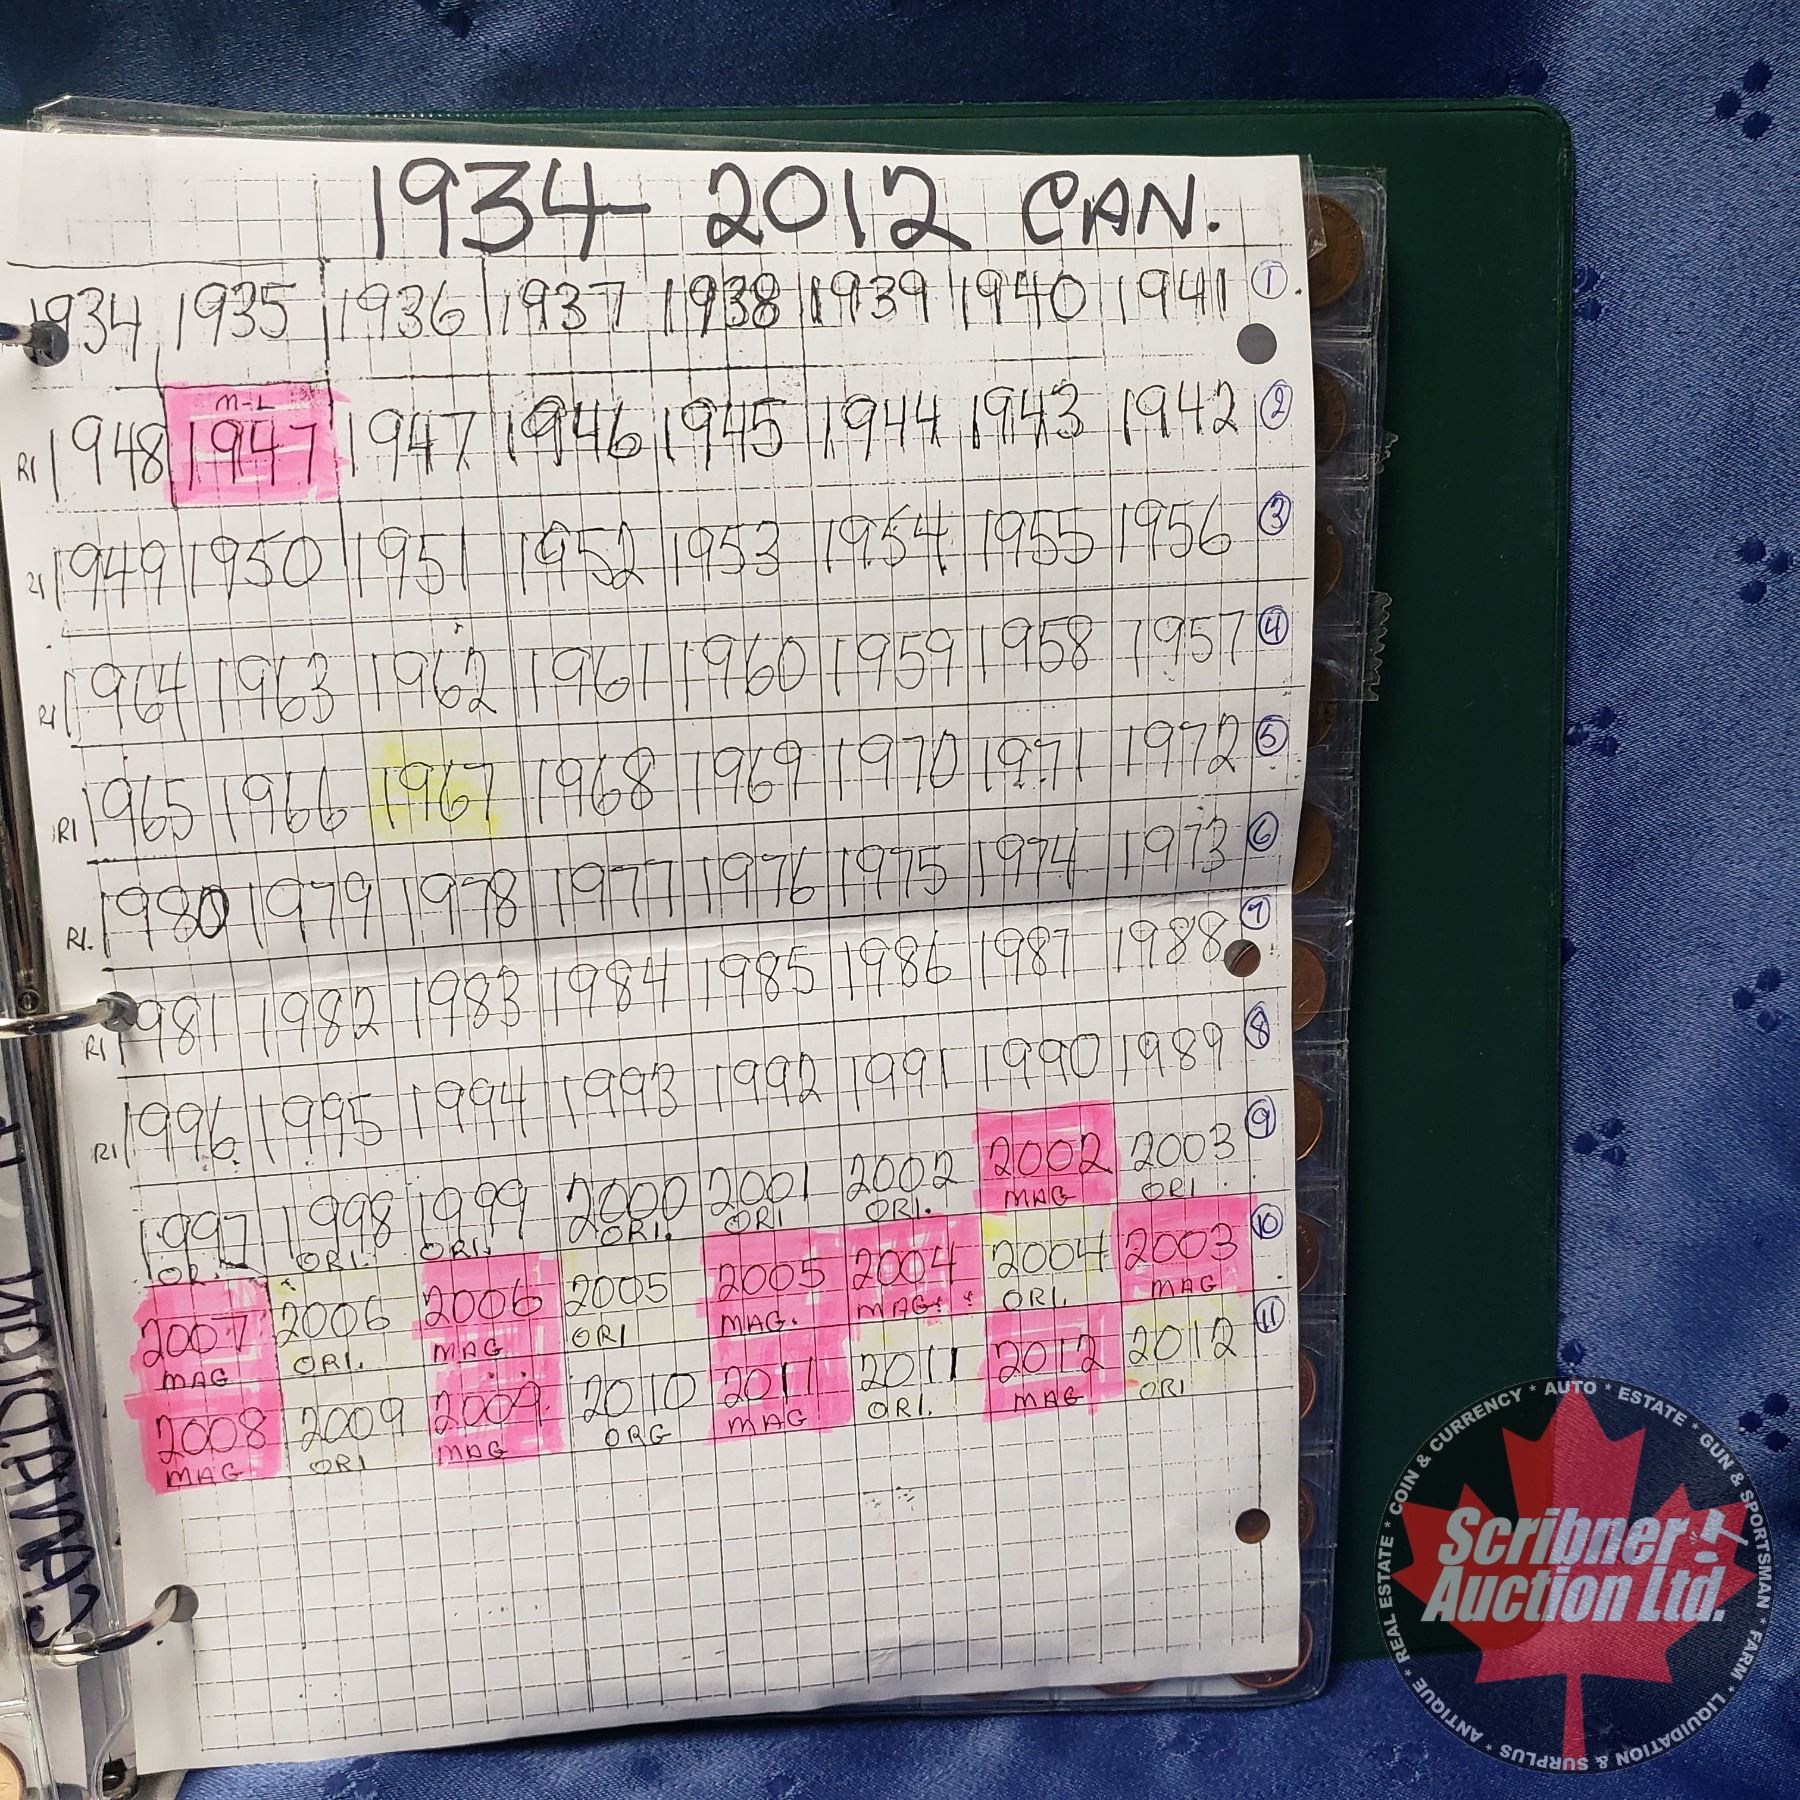 1934 - 2012 CAN.
1934 1935 1936 1937 1938 1939 1940 1941 1
M-L
R1 1948 1947 1947 1946 1945 1944 1943 1942 2
21 1949 1950 1951 1952 1953 1954 1955 1956 3
R1 1964 1963 1962 1961 1960 1959 1958 1957 4
R1 1965 1966 1967 1968 1969 1970 1971 1972 5
R1. 1980 1979 1978 1977 1976 1975 1974 1973 6
R1 1981 1982 1983 1984 1985 1986 1987 1988 7
R1 1996 1995 1994 1993 1992 1991 1990 1989 8
1997 1998 1999 2000 2001 2002 2002 2003 9
ORI. ORI. ORI. ORI. ORI ORI. MAG ORI.
2007 2006 2006 2005 2005 2004 2004 2003 10
MAG ORI. MAG ORI MAG. MAG. ORI. MAG
2008 2009 2009 2010 2011 2011 2012 2012 11
MAG ORI MAG ORG MAG ORI. MAG ORI
Scribner
Auction Ltd.
ANTIQUE * REAL ESTATE * COIN & CURRENCY * AUTO * ESTATE * GUN & SPORTSMAN * FARM * LIQUIDATION & SURPLUS *